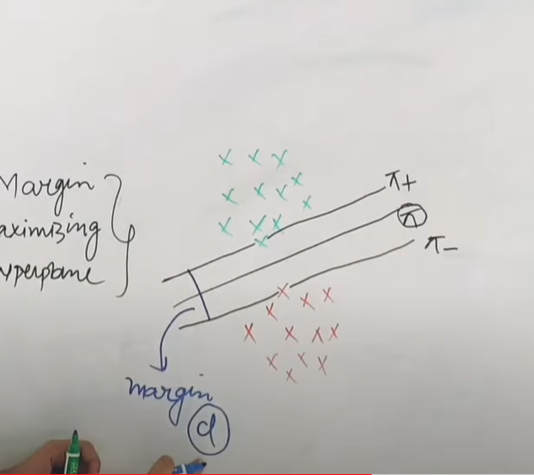 Margin
aximizing
yperplane
π+
π
π-
margin
d